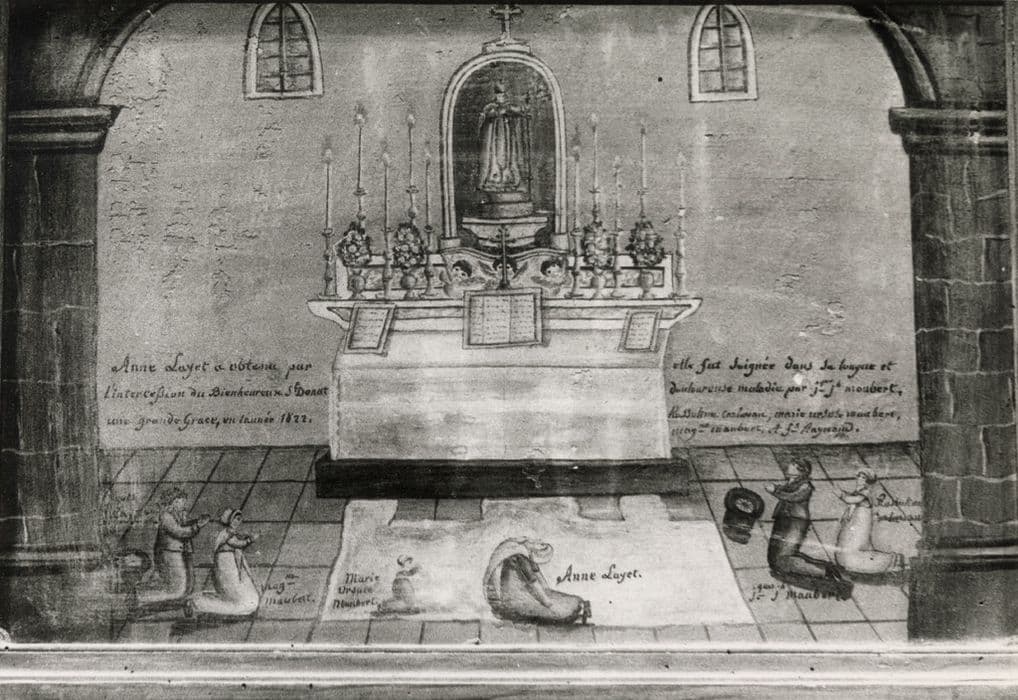 Anne Layet a obtenu par
l'intercession du Bienheureux St Donat
une grande Grace, en l'année 1822.
elle fut soignée dans sa longue et
douloureuse maladie par jn. jh. maubert,
marie ursule maubert,
magne maubert, et
magne
maubert.
Marie
Ursule
Maubert
Anne Layet.
jn j maubert